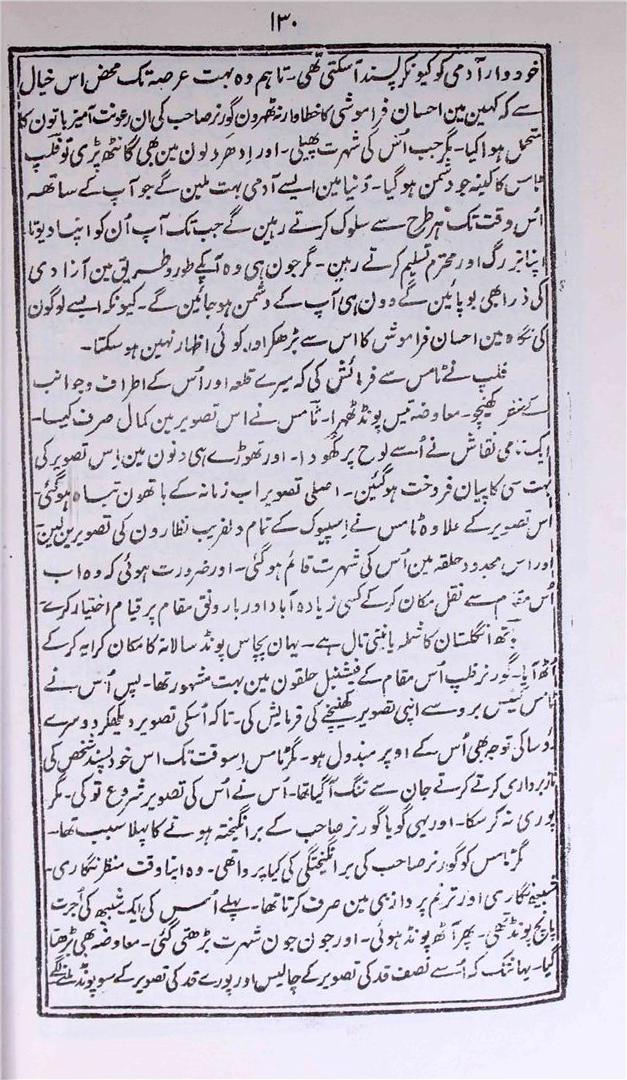 ۱۳۰
خود دار آدمی کو کیونکر پسند آسکتی تھی۔ تاہم وہ بہت عرصہ تک محض اس خیال
سے کہ کہین مین احسان فراموشی کا خطاوار نہ ٹھہرون گورنر صاحب کی ان رعونت آمیز باتون کا
متحمل ہوا کیا۔ مگر جب اُس کی شہرت پھیلی۔ اور اِدھر دلون مین بھی گانٹھ پڑی تو فلپ
ٹامس کا کینہ جو دشمن ہو گیا۔ دُنیا مین ایسے آدمی بہت ملین گے جو آپ کے ساتھ
اُس وقت تک ہر طرح سے سلوک کرتے رہین گے جب تک آپ اُن کو اپنا دیوتا
اپنا بزرگ اور محترم تسلیم کرتے رہین۔ مگر جون ہی وہ آپکے طور و طریق مین آزادی
کی ذرا بھی بو پائین گے وون ہی آپ کے دشمن ہو جائین گے۔ کیونکہ ایسے لوگون
کی نگاہ مین احسان فراموش کا اس سے بڑھکر اور کوئی اظہار نہین ہو سکتا۔
فلپ نے ٹامس سے فرمائش کی کہ میرے قلعہ اور اُس کے اطراف و جوانب
کے منظر کھینچو۔ معاوضہ تیس پونڈ ٹھہرا۔ ٹامس نے اس تصویر مین کمال صرف کیا۔
ایک نامی نقاش نے اُسے لوح پر کھودا۔ اور تھوڑے ہی دنون مین اِس تصویر کی
بہت سی کاپیان فروخت ہو گئین۔ اصلی تصویر اب زمانہ کے ہاتھون تباہ ہو گئی۔
اس تصویر کے علاوہ ٹامس نے اِپسوک کے تمام دلفریب نظارون کی تصویرین لین
اور اس محدود حلقہ مین اُس کی شہرت قائم ہو گئی۔ اور ضرورت ہوئی کہ وہ اب
اُس مقام سے نقل مکان کر کے کسی زیادہ آباد اور بارونق مقام پر قیام اختیار کرے
بتھ انگلستان کا شملہ یا نینی تال ہے۔ یہان پچاس پونڈ سالانہ کا مکان کرایہ کر کے
اُٹھ آیا۔ گورنر فلپ اُس مقام کے فیشنبل حلقون مین بہت مشہور تھا۔ پس اُس نے
ٹامس گینس برو سے اپنی تصویر کھینچنے کی فرمایش کی۔ تاکہ اُسکی تصویر دیکھکر دوسرے
رُؤسا کی توجہ بھی اُس کے اوپر مبذول ہو۔ مگر ٹامس اِسوقت تک اس خود پسند شخص کی
ناز برداری کرتے کرتے جان سے تنگ آ گیا تھا۔ اُس نے اُس کی تصویر شروع تو کی۔ مگر
پوری نہ کر سکا۔ اور یہی گویا گورنر صاحب کے برانگیختہ ہونے کا پہلا سبب تھا۔
مگر ٹامس کو گورنر صاحب کی برانگیختگی کی کیا پروا تھی۔ وہ اپنا وقت منظر نگاری۔
شبیہ نگاری اور ترنم پردازی مین صرف کرتا تھا۔ پہلے اُس کی ایک شبیہ کی اُجرت
پانچ پونڈ تھی۔ پھر آٹھ پونڈ ہوئی۔ اور جون جون شہرت بڑھتی گئی۔ معاوضہ بھی بڑھتا
گیا۔ یہانتک کہ اُسے نصف قد کی تصویر کے چالیس اور پورے قد کی تصویر کے سو پونڈ ملنے لگے